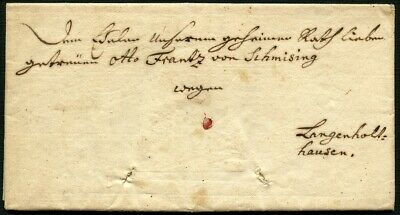 Dem Edalen Unserem geheimen Rath lieben
getreüen Otto Frantz von Schmising
wegen
Langenholt-
hausen.